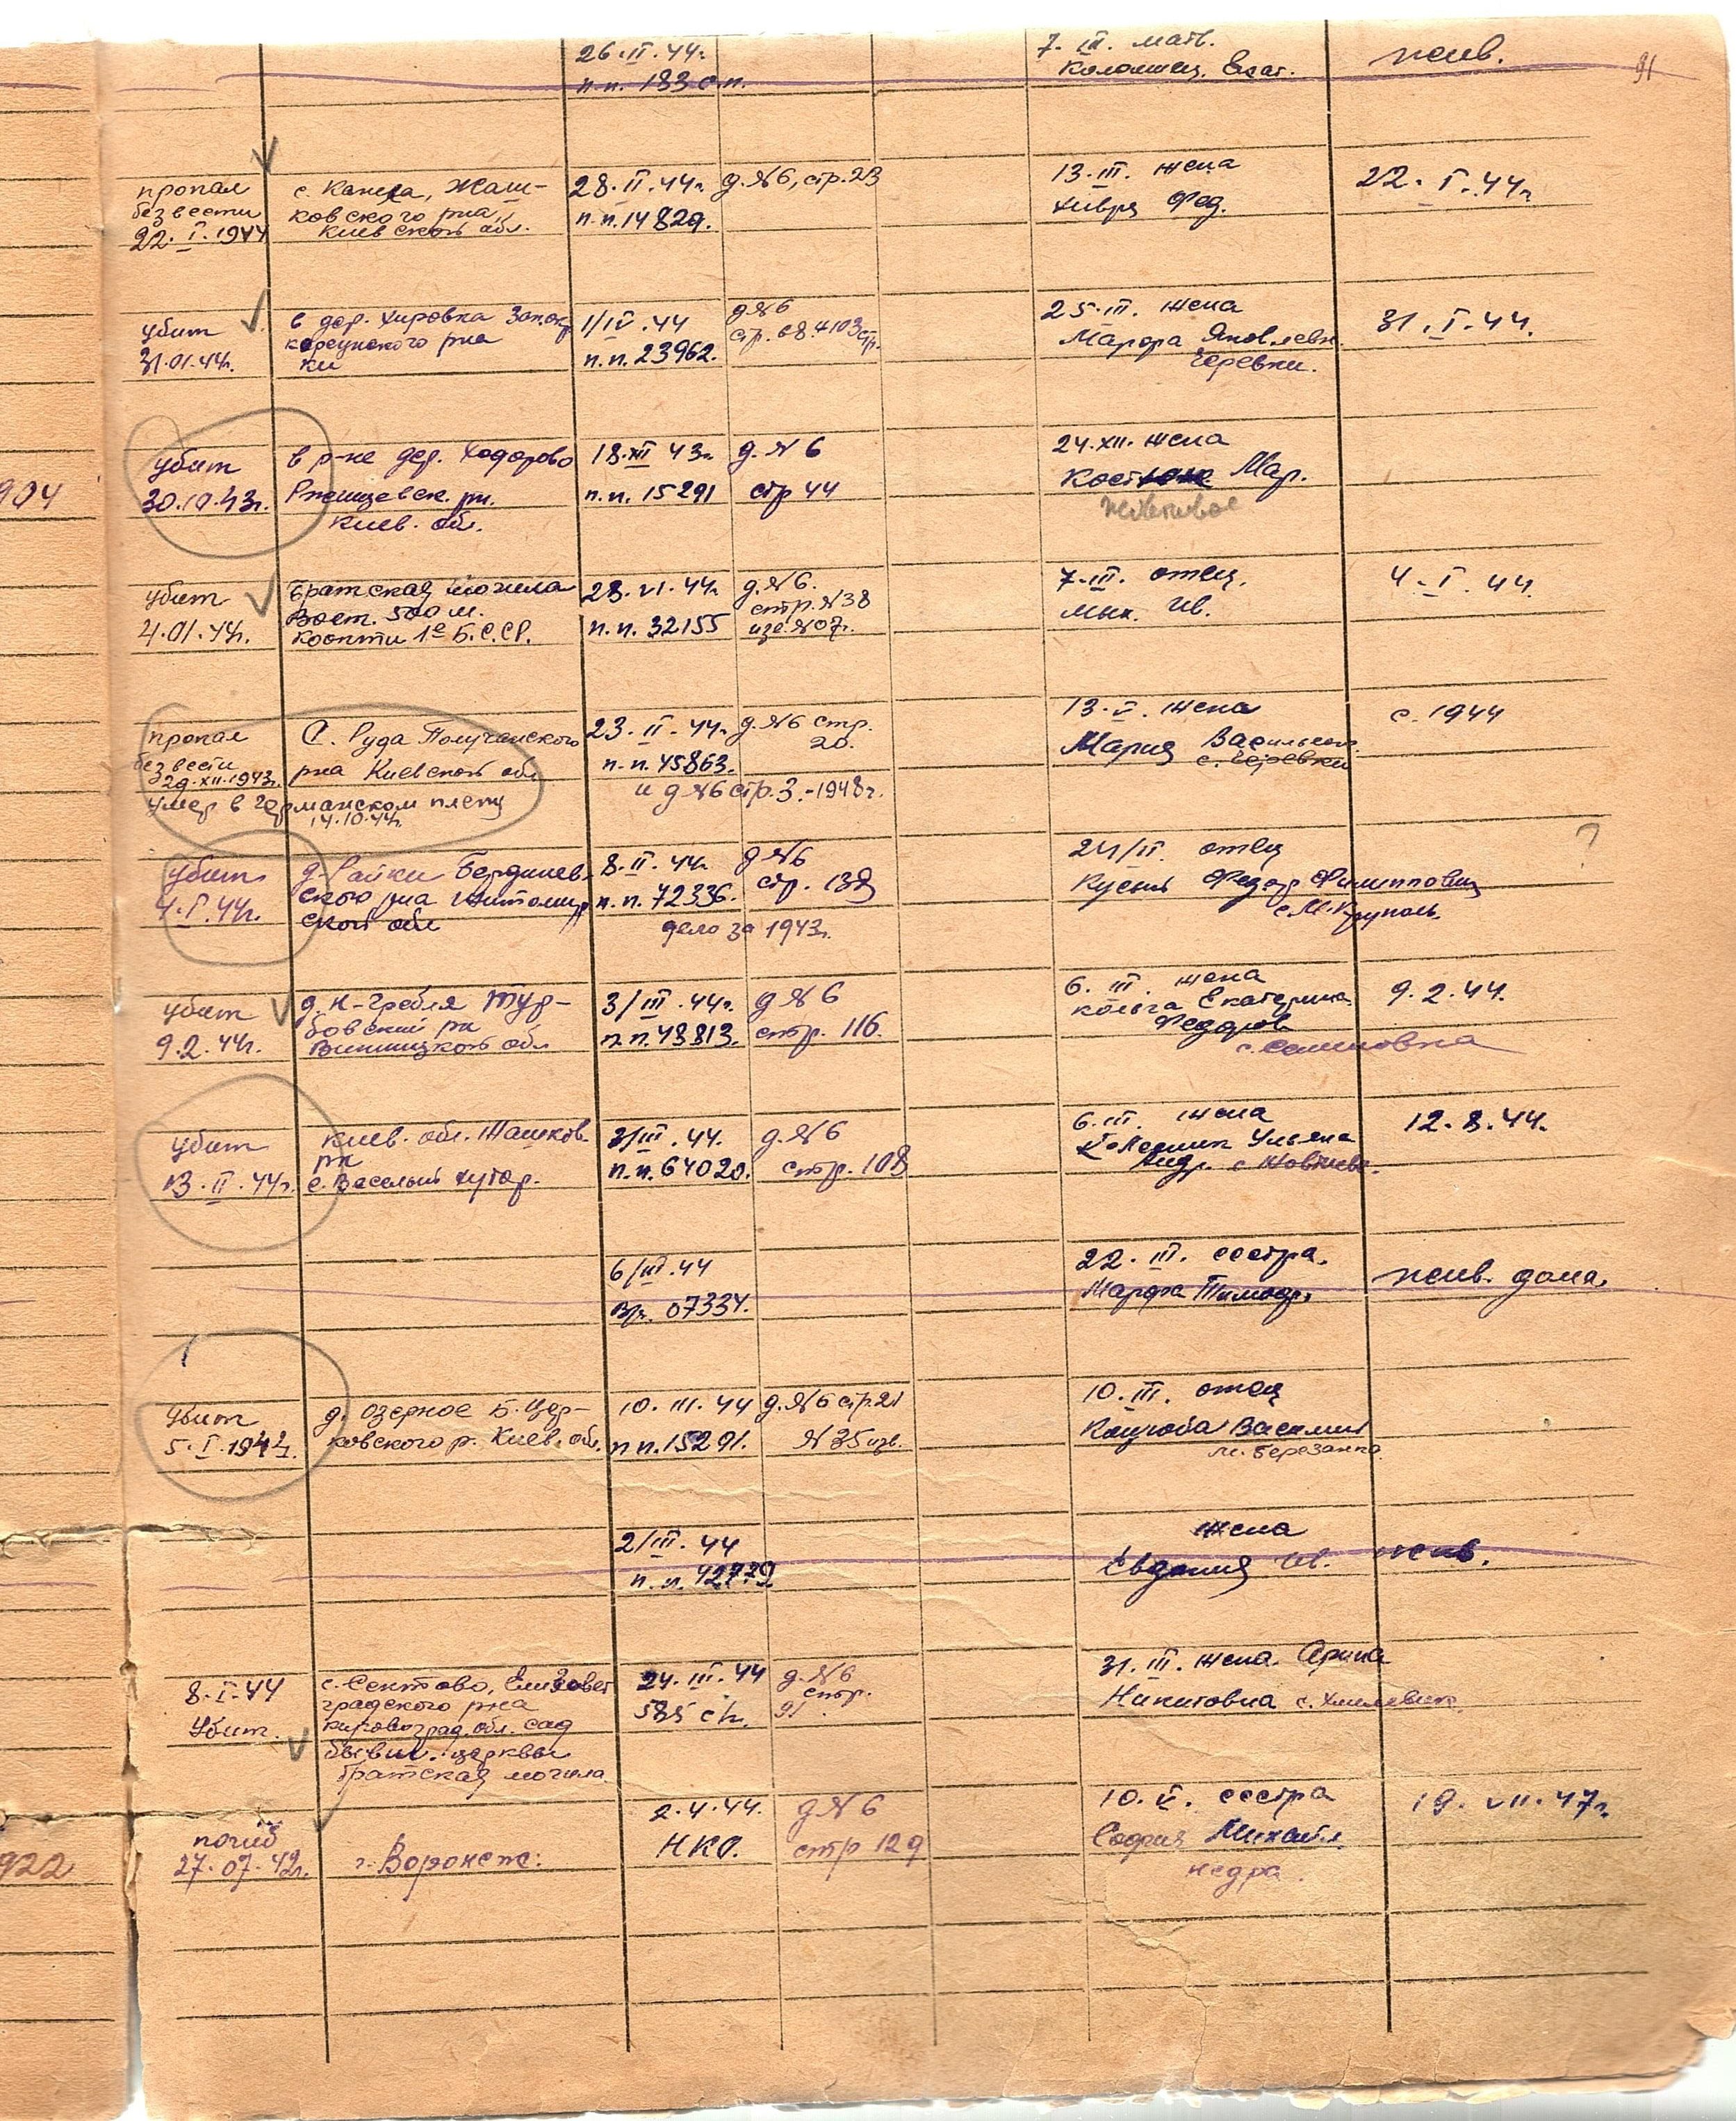 26.II.44г.
п.п. 183 о.п.
7. III. мать.
Коломиец. Екат.
жив.
91
пропал
без вести
22. I. 1944
с. Канела, Жаш-
ковского р-на,
Киевской обл.
28. II. 44г.
п.п. 14829.
д. №6, стр. 23
13. III. жена
Хивря Фед.
22. I. 44г.
убит
31.01.44г.
в дер. Хировка
корсунского р-на
1/IV. 44
п.п. 23962.
д №6
25. III. жена
Марфа Яковлевн.
31. I. 44.
904
убит
30.10.43г.
в р-не дер. Ходорово
Ржищевск. рн.
Киев. обл.
18. XII 43г.
п.п. 15291
д. №6
стр 44
24. XII. жена
Мар.
убит
4.01.44г.
Братская могила
Вост. 500 м.
Б.С.СР.
28. VI. 44г.
п.п. 32155
д. №6.
стр. №38
7. III. отец.
Мик. Ив.
4. I. 44.
пропал
без вести
29. XII. 1943г.
умер в германском плену
14.10.44г.
С. Руда
р-на Киевской обл
23. II. 44г.
п.п. 45863.
д. №6 стр.
20.
и д №6 стр. 3. - 1948г.
13. V. жена
Мария Васильевн.
с. 1944
убит
4. I. 44г.
д. Райки Бердичев-
ского р-на Житомир
ской обл
8. II. 44г.
п.п. 72336.
д №6
стр. 138
дело за 1943г.
24/II. отец
Федор Филиппович
с. М. Круполь.
?
убит
9.2.44г.
д. Н-Гребля Тур-
бовский рн
Винницкой обл
3/III. 44г.
п.п. 43813.
д №6
стр. 116.
6. III. жена
Екатерина
Федоров
с. Семеновка
9.2.44.
убит
13. II. 44г.
Киев. обл. Жашков.
рн
с. Веселый хутор.
3/III. 44.
п.п. 64020.
д. №6
стр. 108
6. III. жена
Ульяна
Андр.
12. 8. 44.
6/III. 44
07334.
22. III. сестра.
Марфа Тимоф.
жив. дома.
убит
5. I. 1944г.
д. Озерное Б. Цер-
ковского р. Киев. обл.
10. III. 44
п п. 15291.
д. №6 стр 21
№35 изв.
10. III. отец
Коцюба Василий
м. Березанка
2/III. 44
п. п. 42779
жена
Евдокия Ив.
жив.
8. I. 44
Убит.
с. Сентово, Елизавет
градского р-на
кировоград. обл. сад
бывш. церквы
братская могила
24. III. 44
585 сп.
д. №6
стр.
91
31. III. жена. Арина
Никитовна с. Хмелевик
922
погиб
27. 07. 42г.
г. Воронеж.
2. 4. 44.
НКО.
д №6
стр 129
10. V. сестра
София Михайл.
недра.
19. VII. 47г.